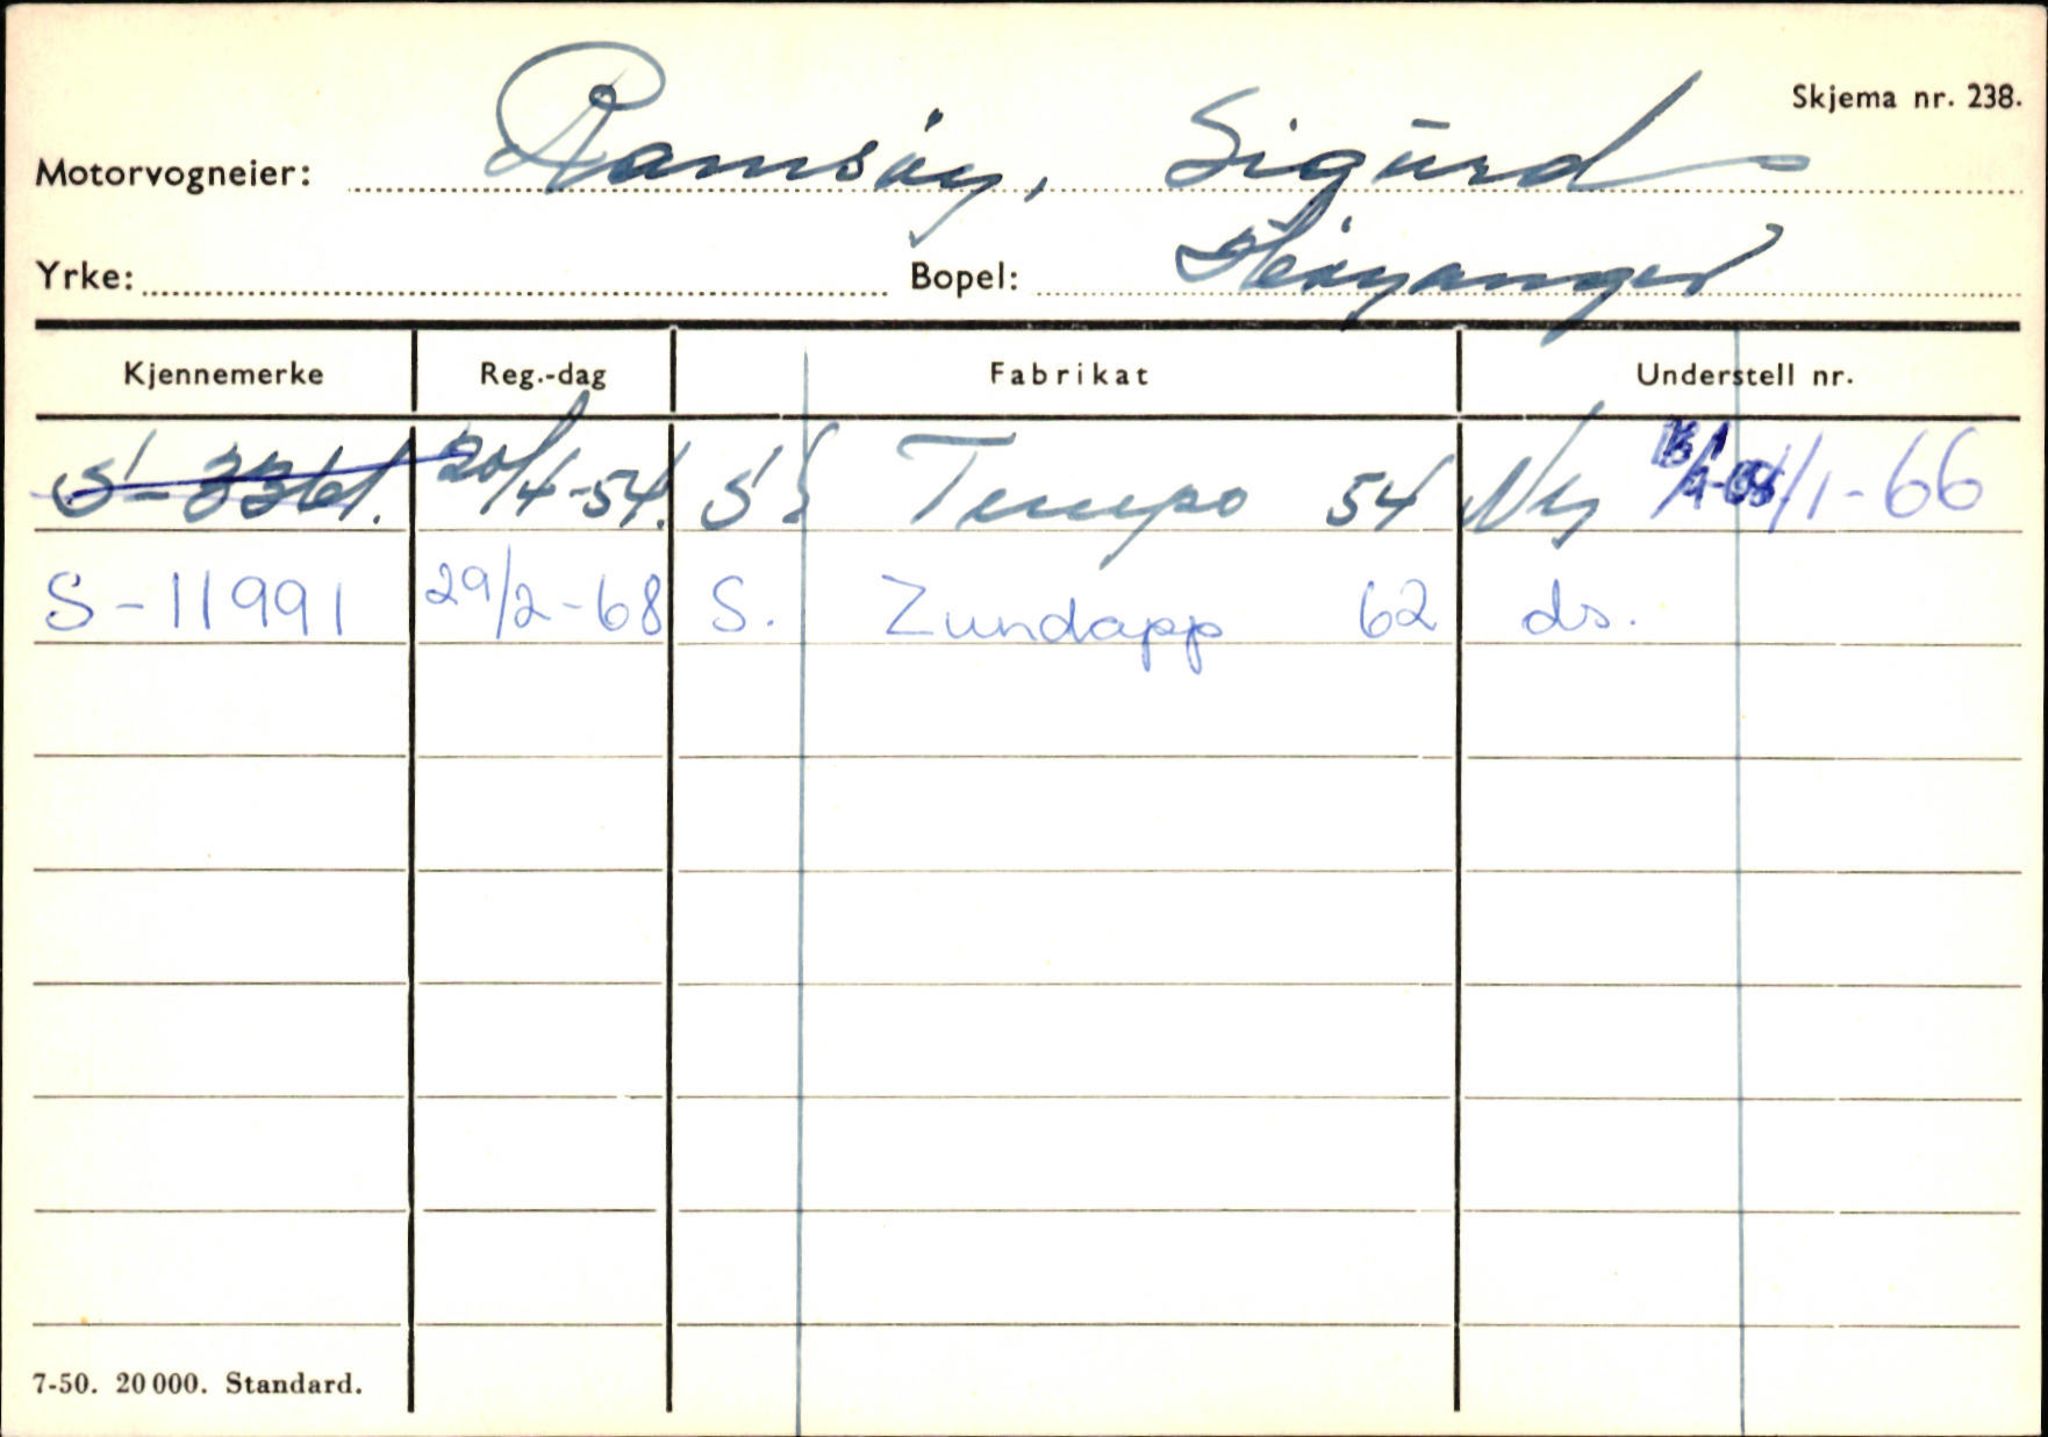 Skjema nr. 238.
Motorvogneier: Ramsøy, Sigurd
Yrke: Bopel: Høyanger
Kjennemerke Reg.-dag Fabrikat Understell nr.
20/4-54. S Tempo 54 Ny 1/1-66
S-11991 29/2-68 S. Zundapp 62 ds.
7-50. 20 000. Standard.